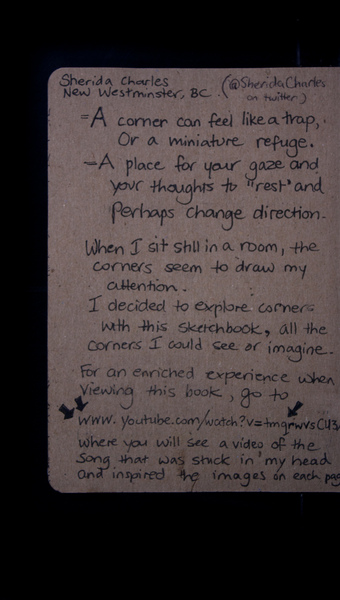 Sherida Charles
New Westminster, BC (@SheridaCharles
on twitter)
-A corner can feel like a trap,
Or a miniature refuge.
-A place for your gaze and
your thoughts to "rest" and
Perhaps change direction.
When I sit still in a room, the
corners seem to draw my
attention.
I decided to explore corners
with this sketchbook, all the
corners I could see or imagine.
For an enriched experience when
viewing this book, go to
www.youtube.com/watch?v=
where you will see a video of the
song that was stuck in my head
and inspired the images on each